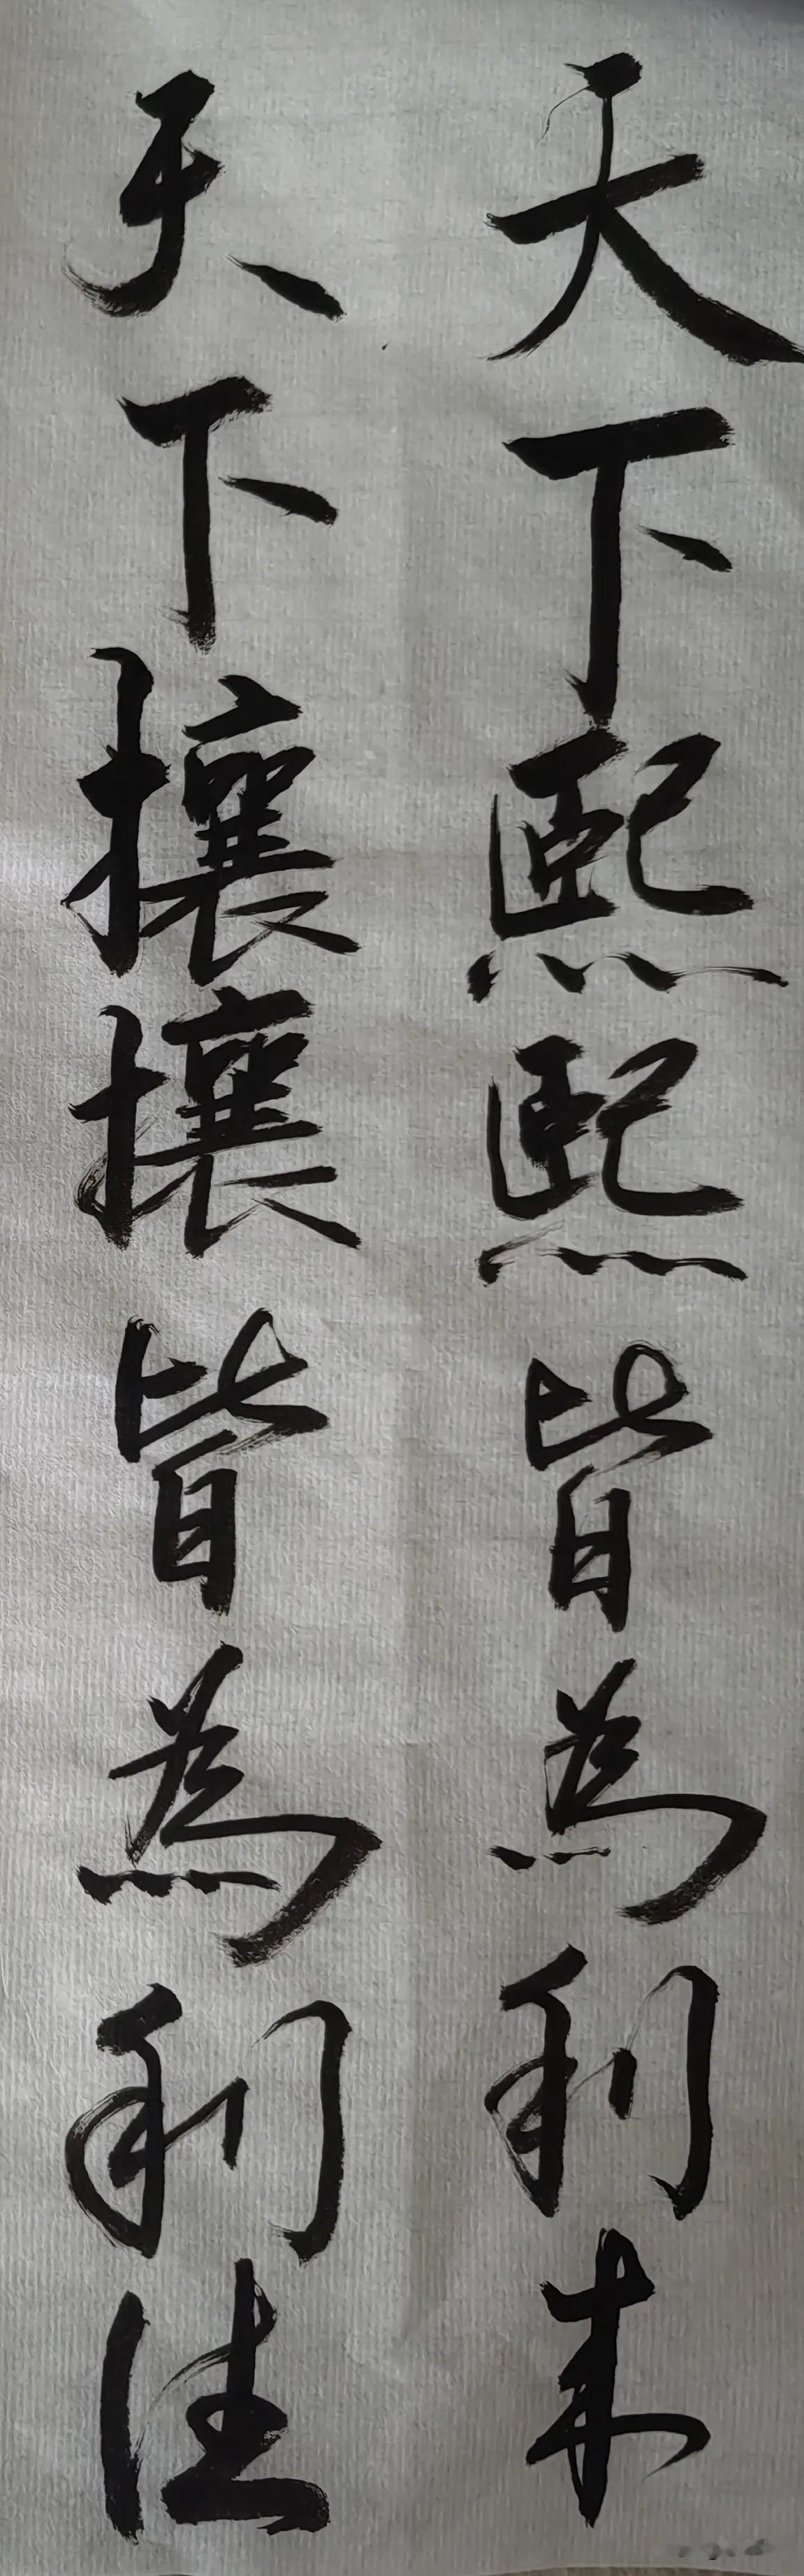 天下熙熙皆為利来
天下攘攘皆為利往